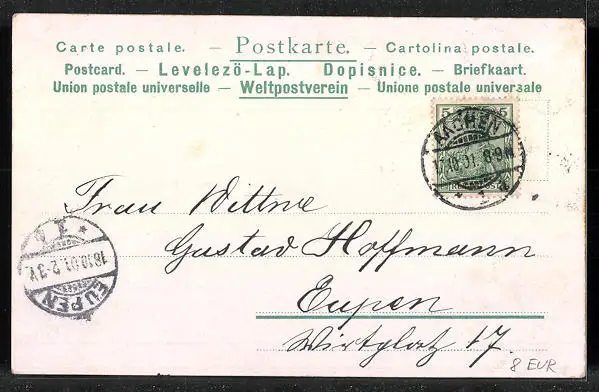 Carte postale. — Postkarte. — Cartolina postale.
Postcard. — Levelezö-Lap. Dopisnice. — Briefkaart.
Union postale universelle — Weltpostverein — Unione postale universale
5 5
AACHEN
8-9N
Frau Wittwe
Gustav Hoffmann
Eupen
Wirtplatz 17.
18.10.01. 2-3V.
EUPEN
8 EUR